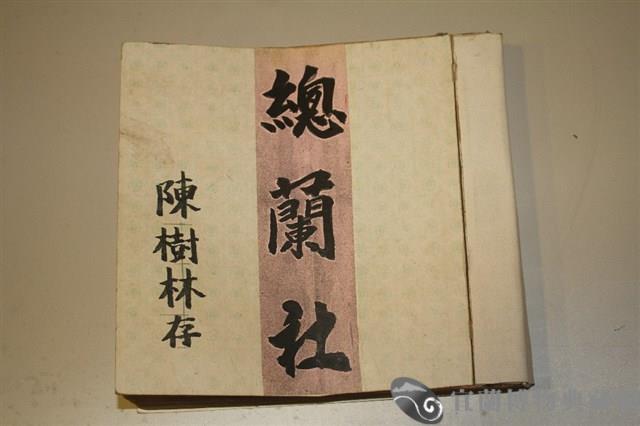 總蘭社
陳樹林存